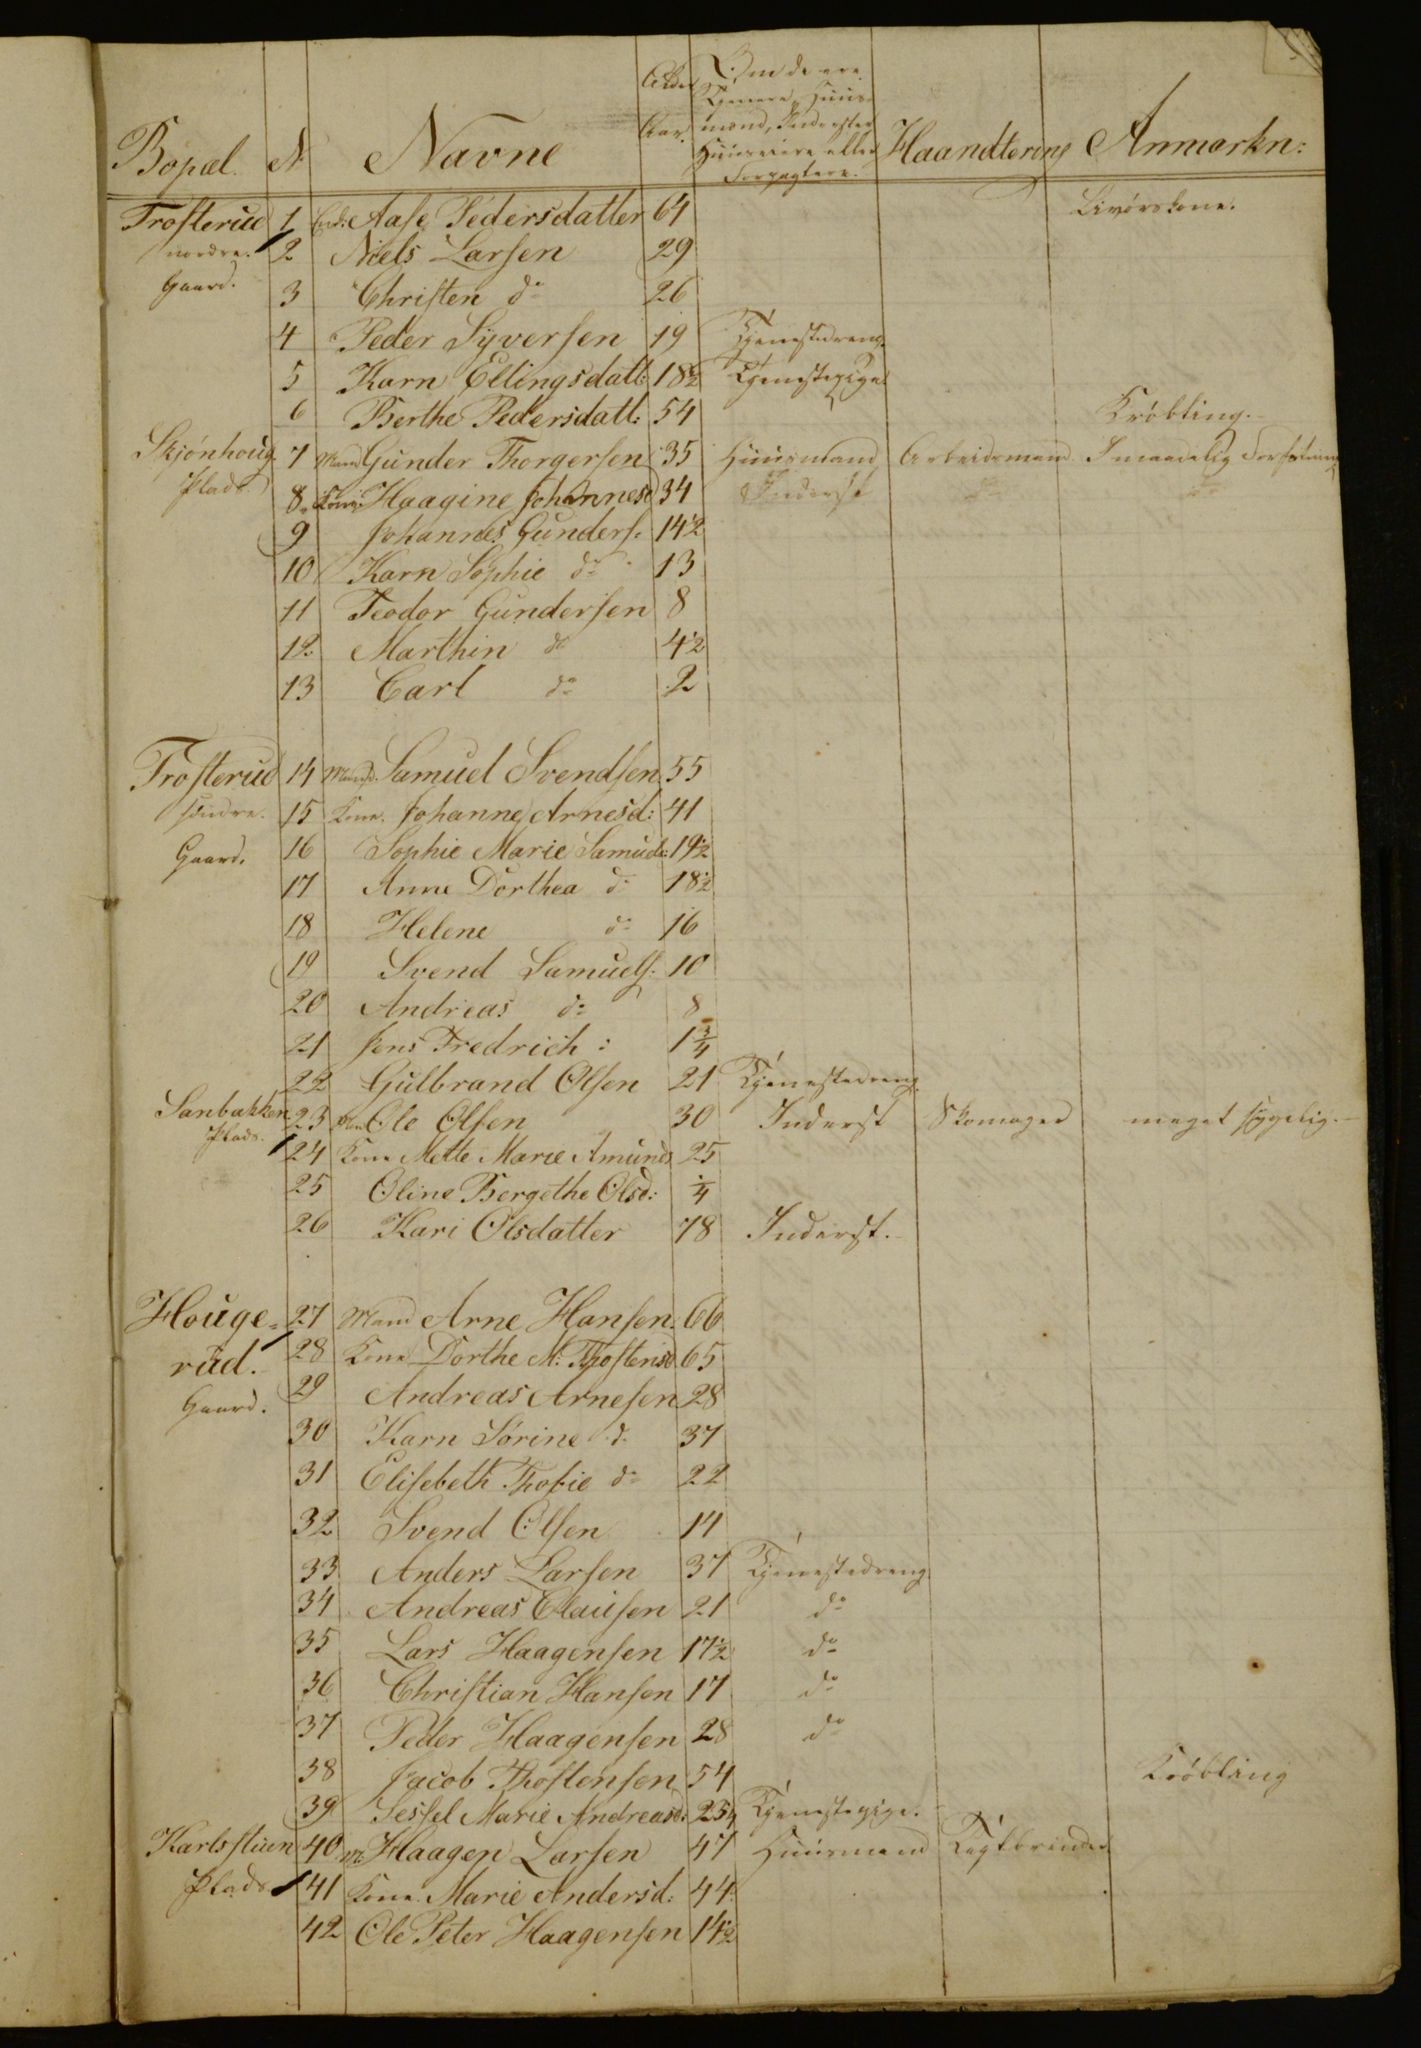 Bopæl. N. Navne Alder Aar. Om de ere Tjenere, Huusmænd, Inderster Huuseiere eller Forpagtere. Haandtering Anmærkn:
Trosterud 1 Enke Aase Pedersdatter 64 Livørskone.
nordre. 2 Niels Larsen 29
Gaard. 3 Christen do 26
4 Peder Syversen 19 Tjenestedreng.
5 Karn Ellingsdatt: 18½ Tjenestepige
6 Berthe Pedersdatt: 54 Krøbling.
Skjönhoug 7 Mand Gunder Thorgersen 35 Huusmand Arbeidsmand I maadelig Forfatning
Plads. 8 Kone Haagine Johannesd 34 Inderst do do
9 Johannes Gunders. 14½
10 Karn Sophie do 13
11 Teodor Gundersen 8
12 Marthin do 4½
13 Carl do 2
Trosterud 14 Mand. Samuel Svendsen 55
söndre. 15 Kone. Johanne Arnesd: 41
Gaard. 16 Sophie Marie Samuels: 19½
17 Anne Dorthea do 18½
18 Helene do 16
19 Svend Samuels: 10
20 Andreas do 8
21 Jens Fredrich : 1¾
22 Gulbrand Olsen 21 Tjenestedreng
Sanbakken 23 Man Ole Olsen 30 Inderst Skomager meget sygelig.
Plads. 24 Kone Mette Marie Amunds 25
25 Oline Bergethe Olsd: ¼
26 Kari Olsdatter 78 Inderst.
Houge- 27 Mand Arne Hansen 66
rud. 28 Kone Dorthe M: Thostensd 65
Gaard. 29 Andreas Arnesen 28
30 Karn Sörine do 37
31 Elisebeth Thofie do 22
32 Svend Olsen 14
33 Anders Larsen 37 Tjenestedreng
34 Andreas Clausen 21 do
35 Lars Haagensen 17½ do
36 Christian Hansen 17 do
37 Peder Haagensen 28 do
38 Jacob Thostensen 54 Krøbling
39 Sessel Marie Andreasd: 25¼ Tjenestepige.
Karlsstuen 40 M. Haagen Larsen 47 Huusmand Tægtbrinder
Plads 41 Kone. Marie Andersd: 44
42 Ole Peter Haagensen 14½